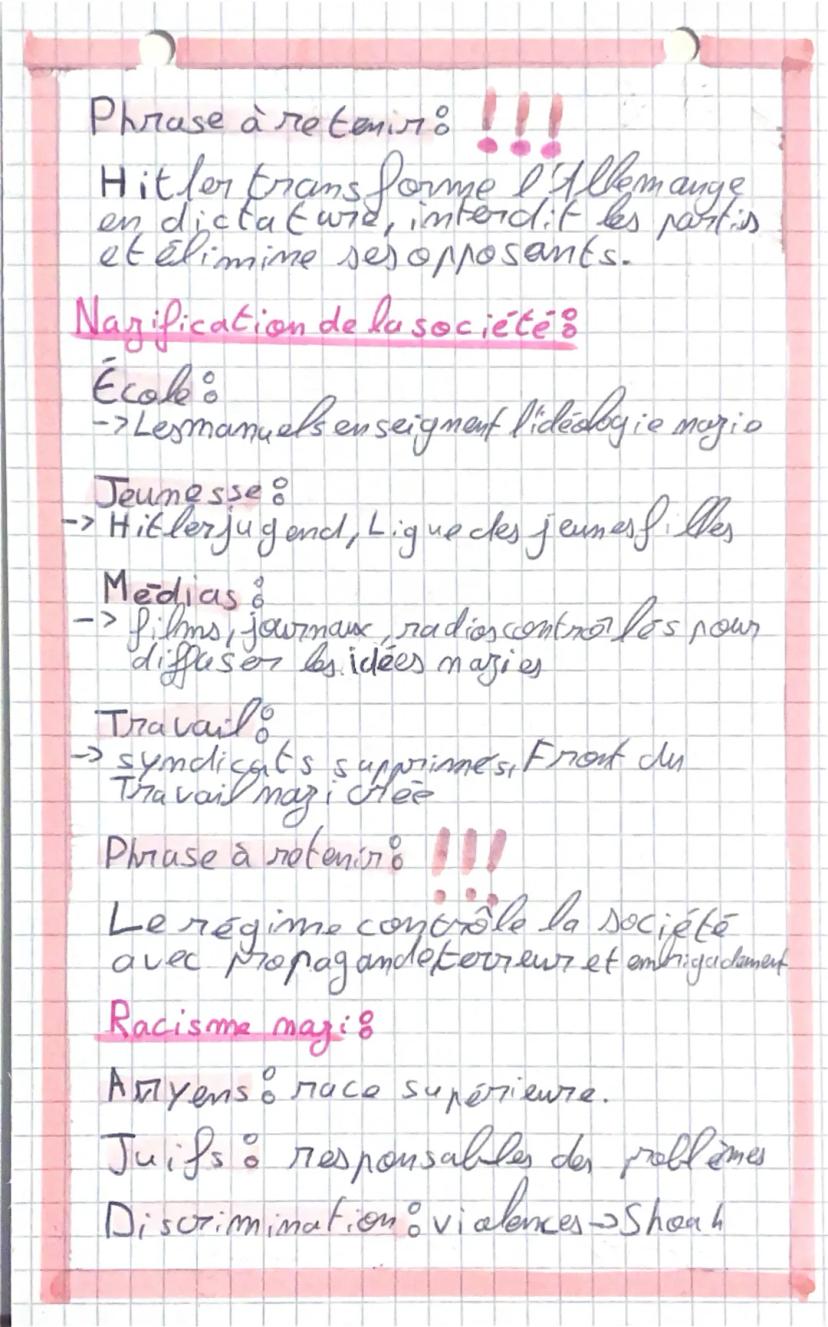 Phrase à retenir : !!!
Hitler transforme l'Allemange
en dictature, interdit les partis
et élimine ses opposants.
Nazification de la société :
École :
-> Les manuels enseignent l'idéologie nazie
Jeunesse :
-> Hitlerjugend, Ligue des jeunes filles
Médias :
-> films, journaux, radios contrôlés pour
diffuser les idées nazies
Travail :
-> syndicats supprimés, Front du
Travail nazi créé
Phrase à retenir : !!!
Le régime contrôle la société
avec propagande, terreur et embrigadement
Racisme nazi :
Aryens : race supérieure.
Juifs : responsables des problèmes
Discrimination : violences -> Shoah